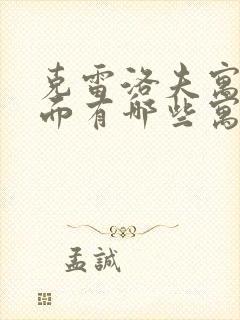 克雷洛夫寓
而有哪些寓
孟誠